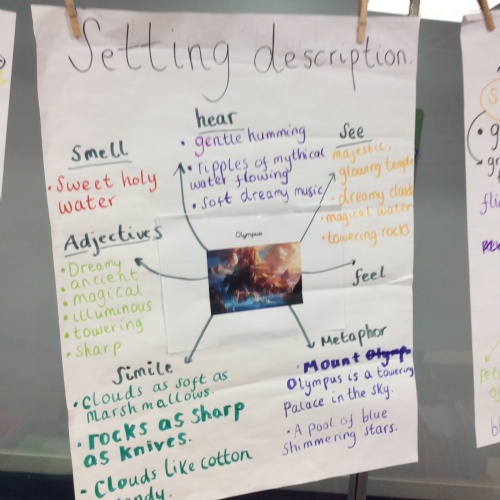 Setting description.
hear
• gentle humming
• ripples of mythical
water flowing
• soft dreamy music
See
majestic,
glowing temple
• dreamy clouds
• magical water
• towering rocks
Smell
• Sweet holy
water
Adjectives
• Dreamy
• ancient
• magical
• illuminous
• towering
• sharp
Olympus
feel
Simile
• Clouds as soft as
Marshmallows.
• rocks as sharp
as knives.
• Clouds like cotton
Metaphor
• Mount Olymp
Olympus is a towering
Palace in the sky.
• A pool of blue
shimmering stars.